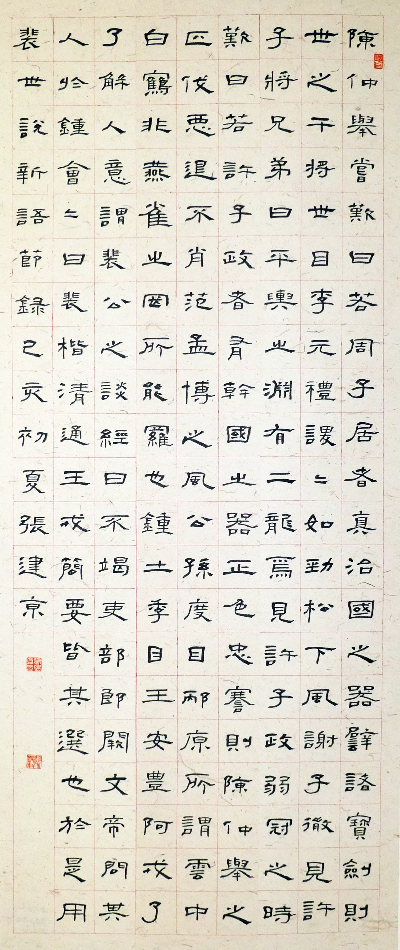 陳仲舉嘗歎曰若周子居者真治國之器譬諸寶劍則
世之干將世目李元禮謖〻如勁松下風謝子微見許
子將兄弟曰平輿之淵有二龍焉見許子政弱冠之時
歎曰若許子政者有幹國之器正色忠謇則陳仲舉之
匹伐惡退不肖范孟博之風公孫度目邴原所謂雲中
白鶴非燕雀之罔所能羅也鍾士季目王安豐阿戎了
了解人意謂裴公之談經日不竭吏部郎闕文帝問其
人於鍾會〻曰裴楷清通王戎簡要皆其選也於是用
裴世說新語節錄己亥初夏張建京